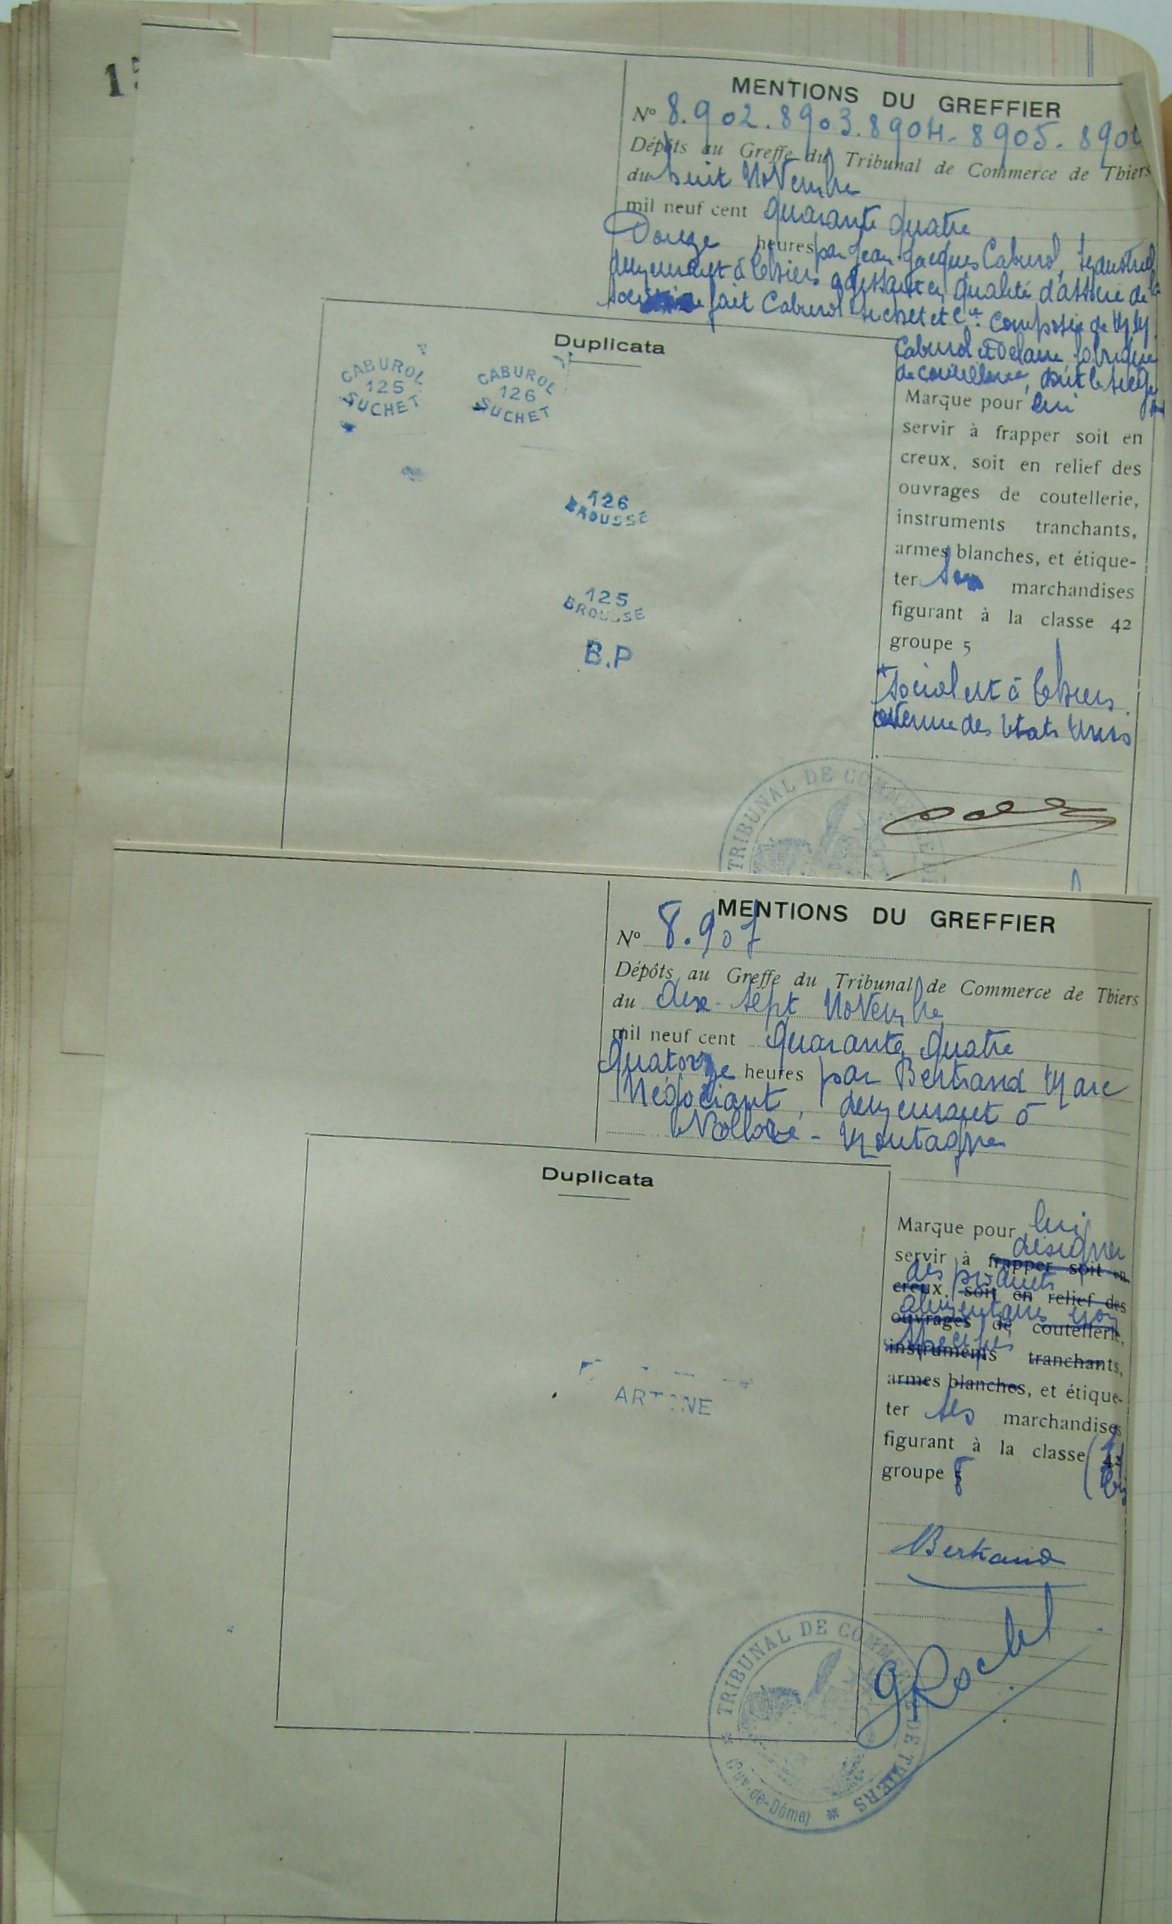 MENTIONS DU GREFFIER
Nº 8.902. 8903. 8904- 8905- 890
Dépôts au Greffe du Tribunal de Commerce de Thiers
du huit Novembre
mil neuf cent quarante quatre
Douze heures par Jean Jacques Caburol, Industriel
demeurant à Thiers agissant en qualité d'associé de la
fait Caburol Suchet et Cie. Composée de MM
Caburol et Delaire fabrique
de coutellerie, dont le siège
Duplicata
CABUROL
125
SUCHET
CABUROL
126
SUCHET
126
BROUSSE
125
BROUSSE
B.P
Marque pour lui
servir à frapper soit en
creux, soit en relief des
ouvrages de coutellerie,
instruments tranchants,
armes blanches, et étique-
ter ses marchandises
figurant à la classe 42
groupe 5
social est à Thiers
avenue des Etats Unis
TRIBUNAL DE COMMERCE DE
MENTIONS DU GREFFIER
Nº 8.907
Dépôts au Greffe du Tribunal de Commerce de Thiers
du dix-sept Novembre
mil neuf cent quarante quatre
Quatorze heures par Bertrand Marc
Négociant, demeurant à
Vollore-Montagne
Duplicata
ARTINE
Marque pour lui
désigner
servir à frapper soit en
des produits
creux, soit en relief des
alimentaires non
ouvrages de coutellerie,
spécifiés
instruments tranchants,
armes blanches, et étique-
ter ses marchandises
figurant à la classe 42
groupe 8
Bertrand
GRochel
TRIBUNAL DE COMMERCE DE THIERS
(Puy-de-Dôme)